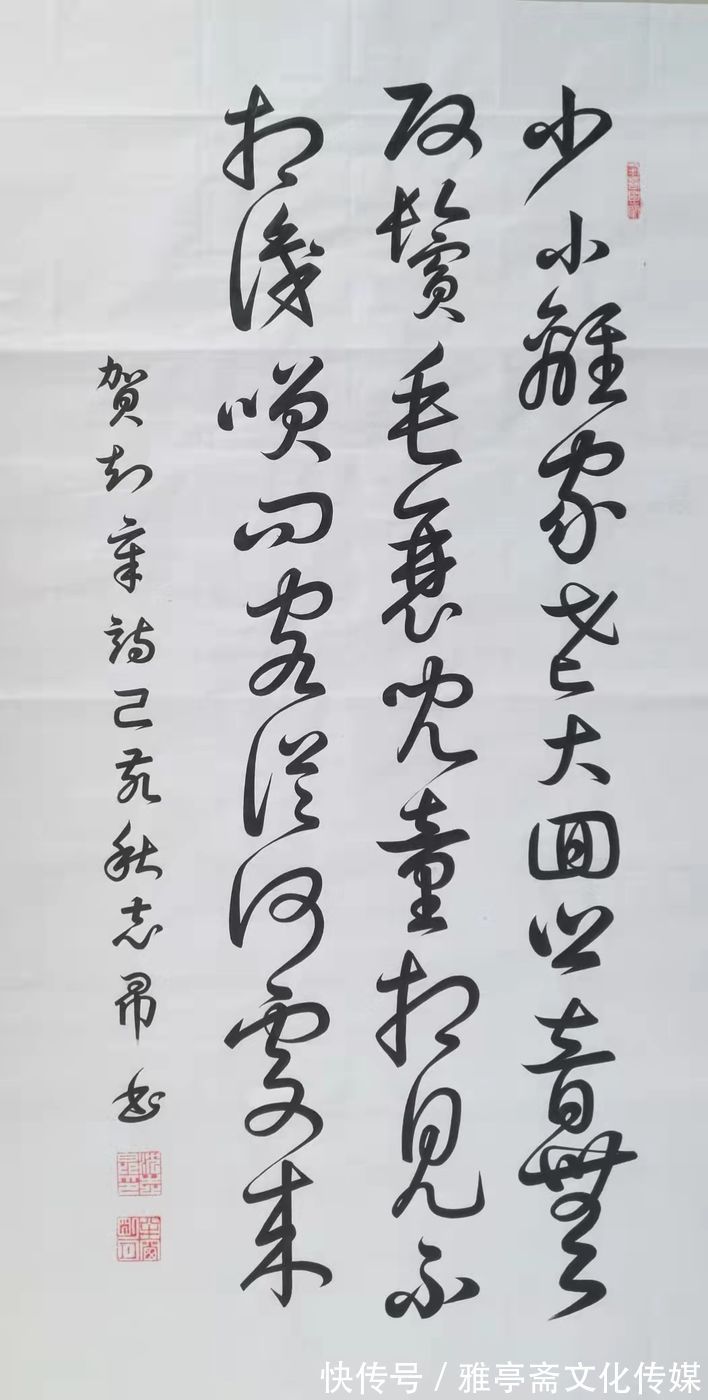 少小離家老大囬鄉音無
改鬢毛衰兒童相見不
相識咲問客從何處來
賀知章詩己亥秋志昂書
快传号 / 雅亭斋文化传媒